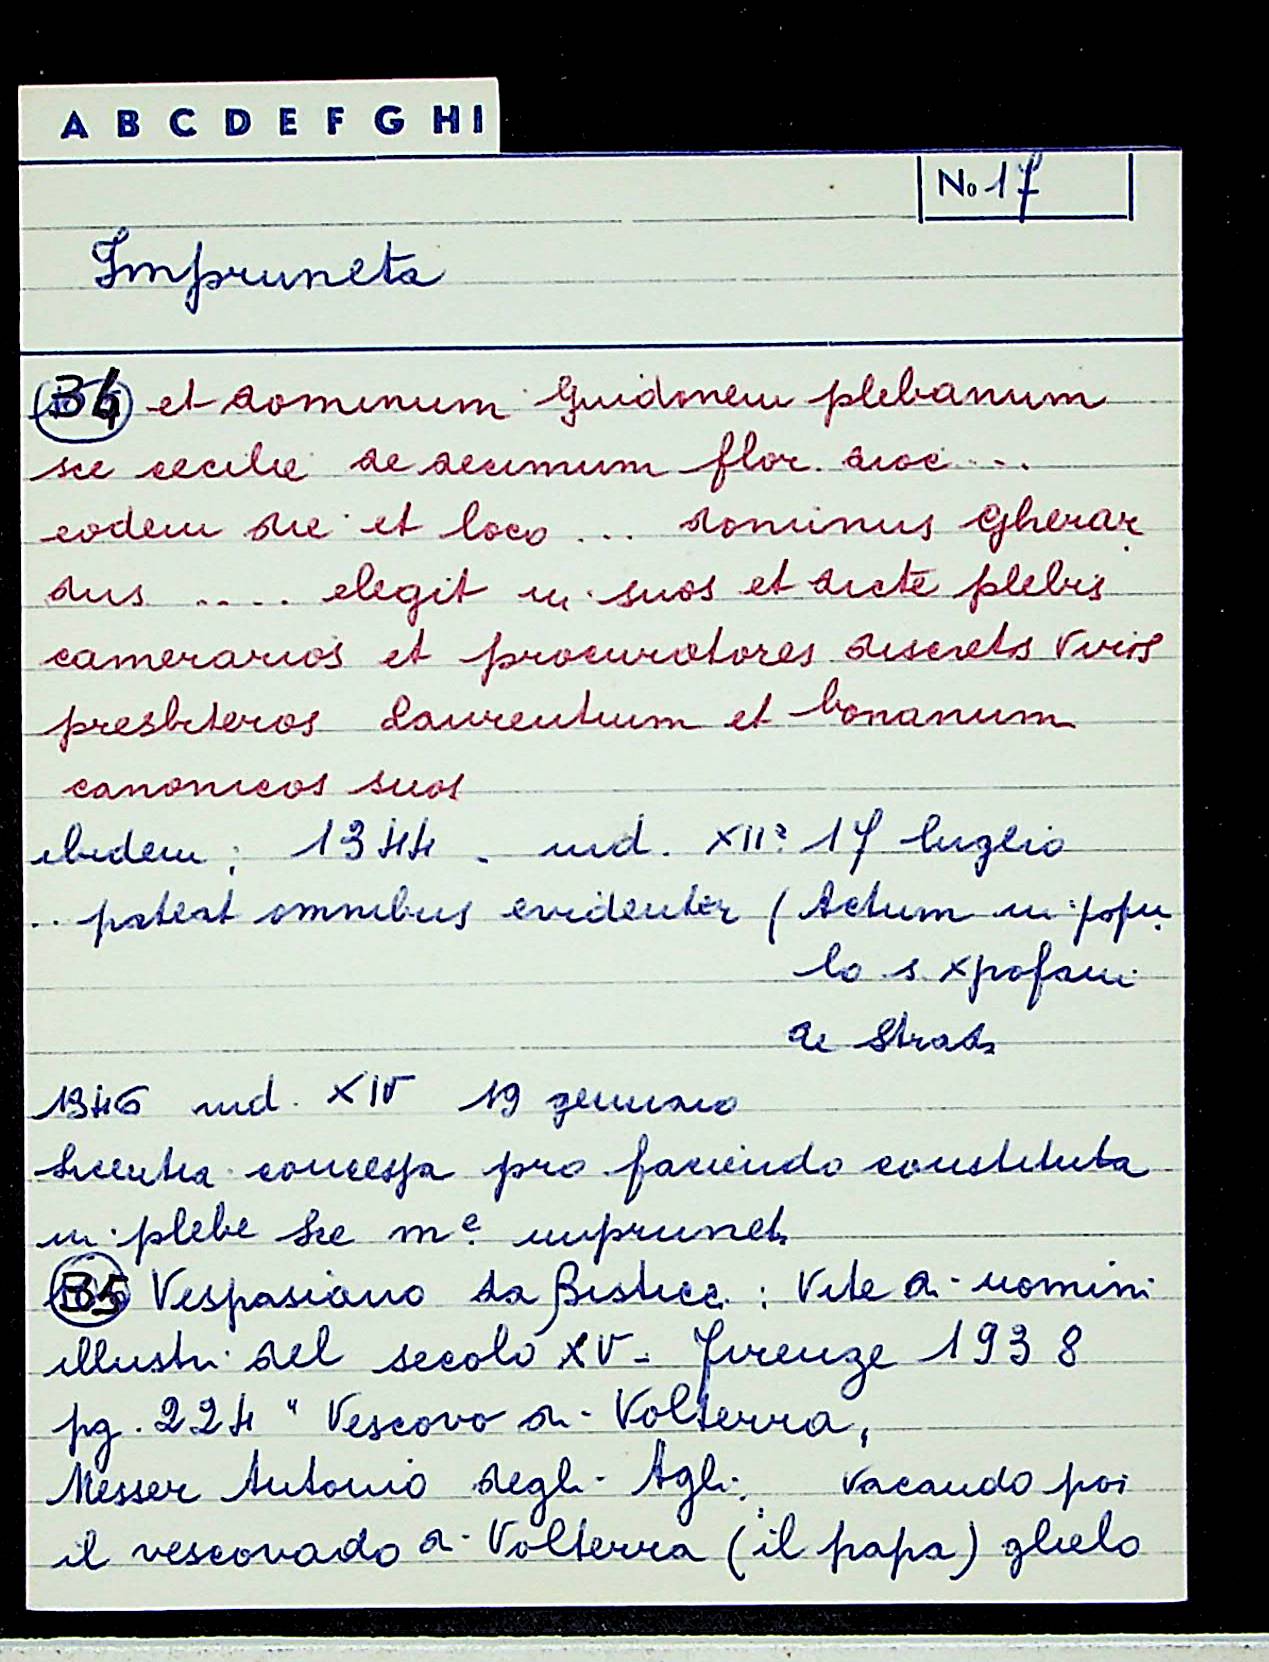 A B C D E F G H I
No 17
Impruneta
B4 et dominum Guidonem plebanum
sce cecilie de decimum flor. dioc ...
eodem die et loco ... dominus Gherar
dus .... elegit in suos et dicte plebis
camerarios et procuratores discretos viros
presbiteros Laurentium et bonanum
canonicos suos
ibidem; 1344. ind. XIIª 17 luglio
.. pateat omnibus evidenter (Actum in popu
lo s. xpofani
de Strada
1346 ind. XIV 19 gennaio
licentia concessa pro faciendo constituta
in plebe Sce mᵉ. imprunet.
B5 Vespasiano da Bisticci: Vite di uomini
illustri del secolo XV - Firenze 1938
pg. 224 " Vescovo di Volterra,
Messer Antonio degli Agli: vacando poi
il vescovado di Volterra (il papa) glielo